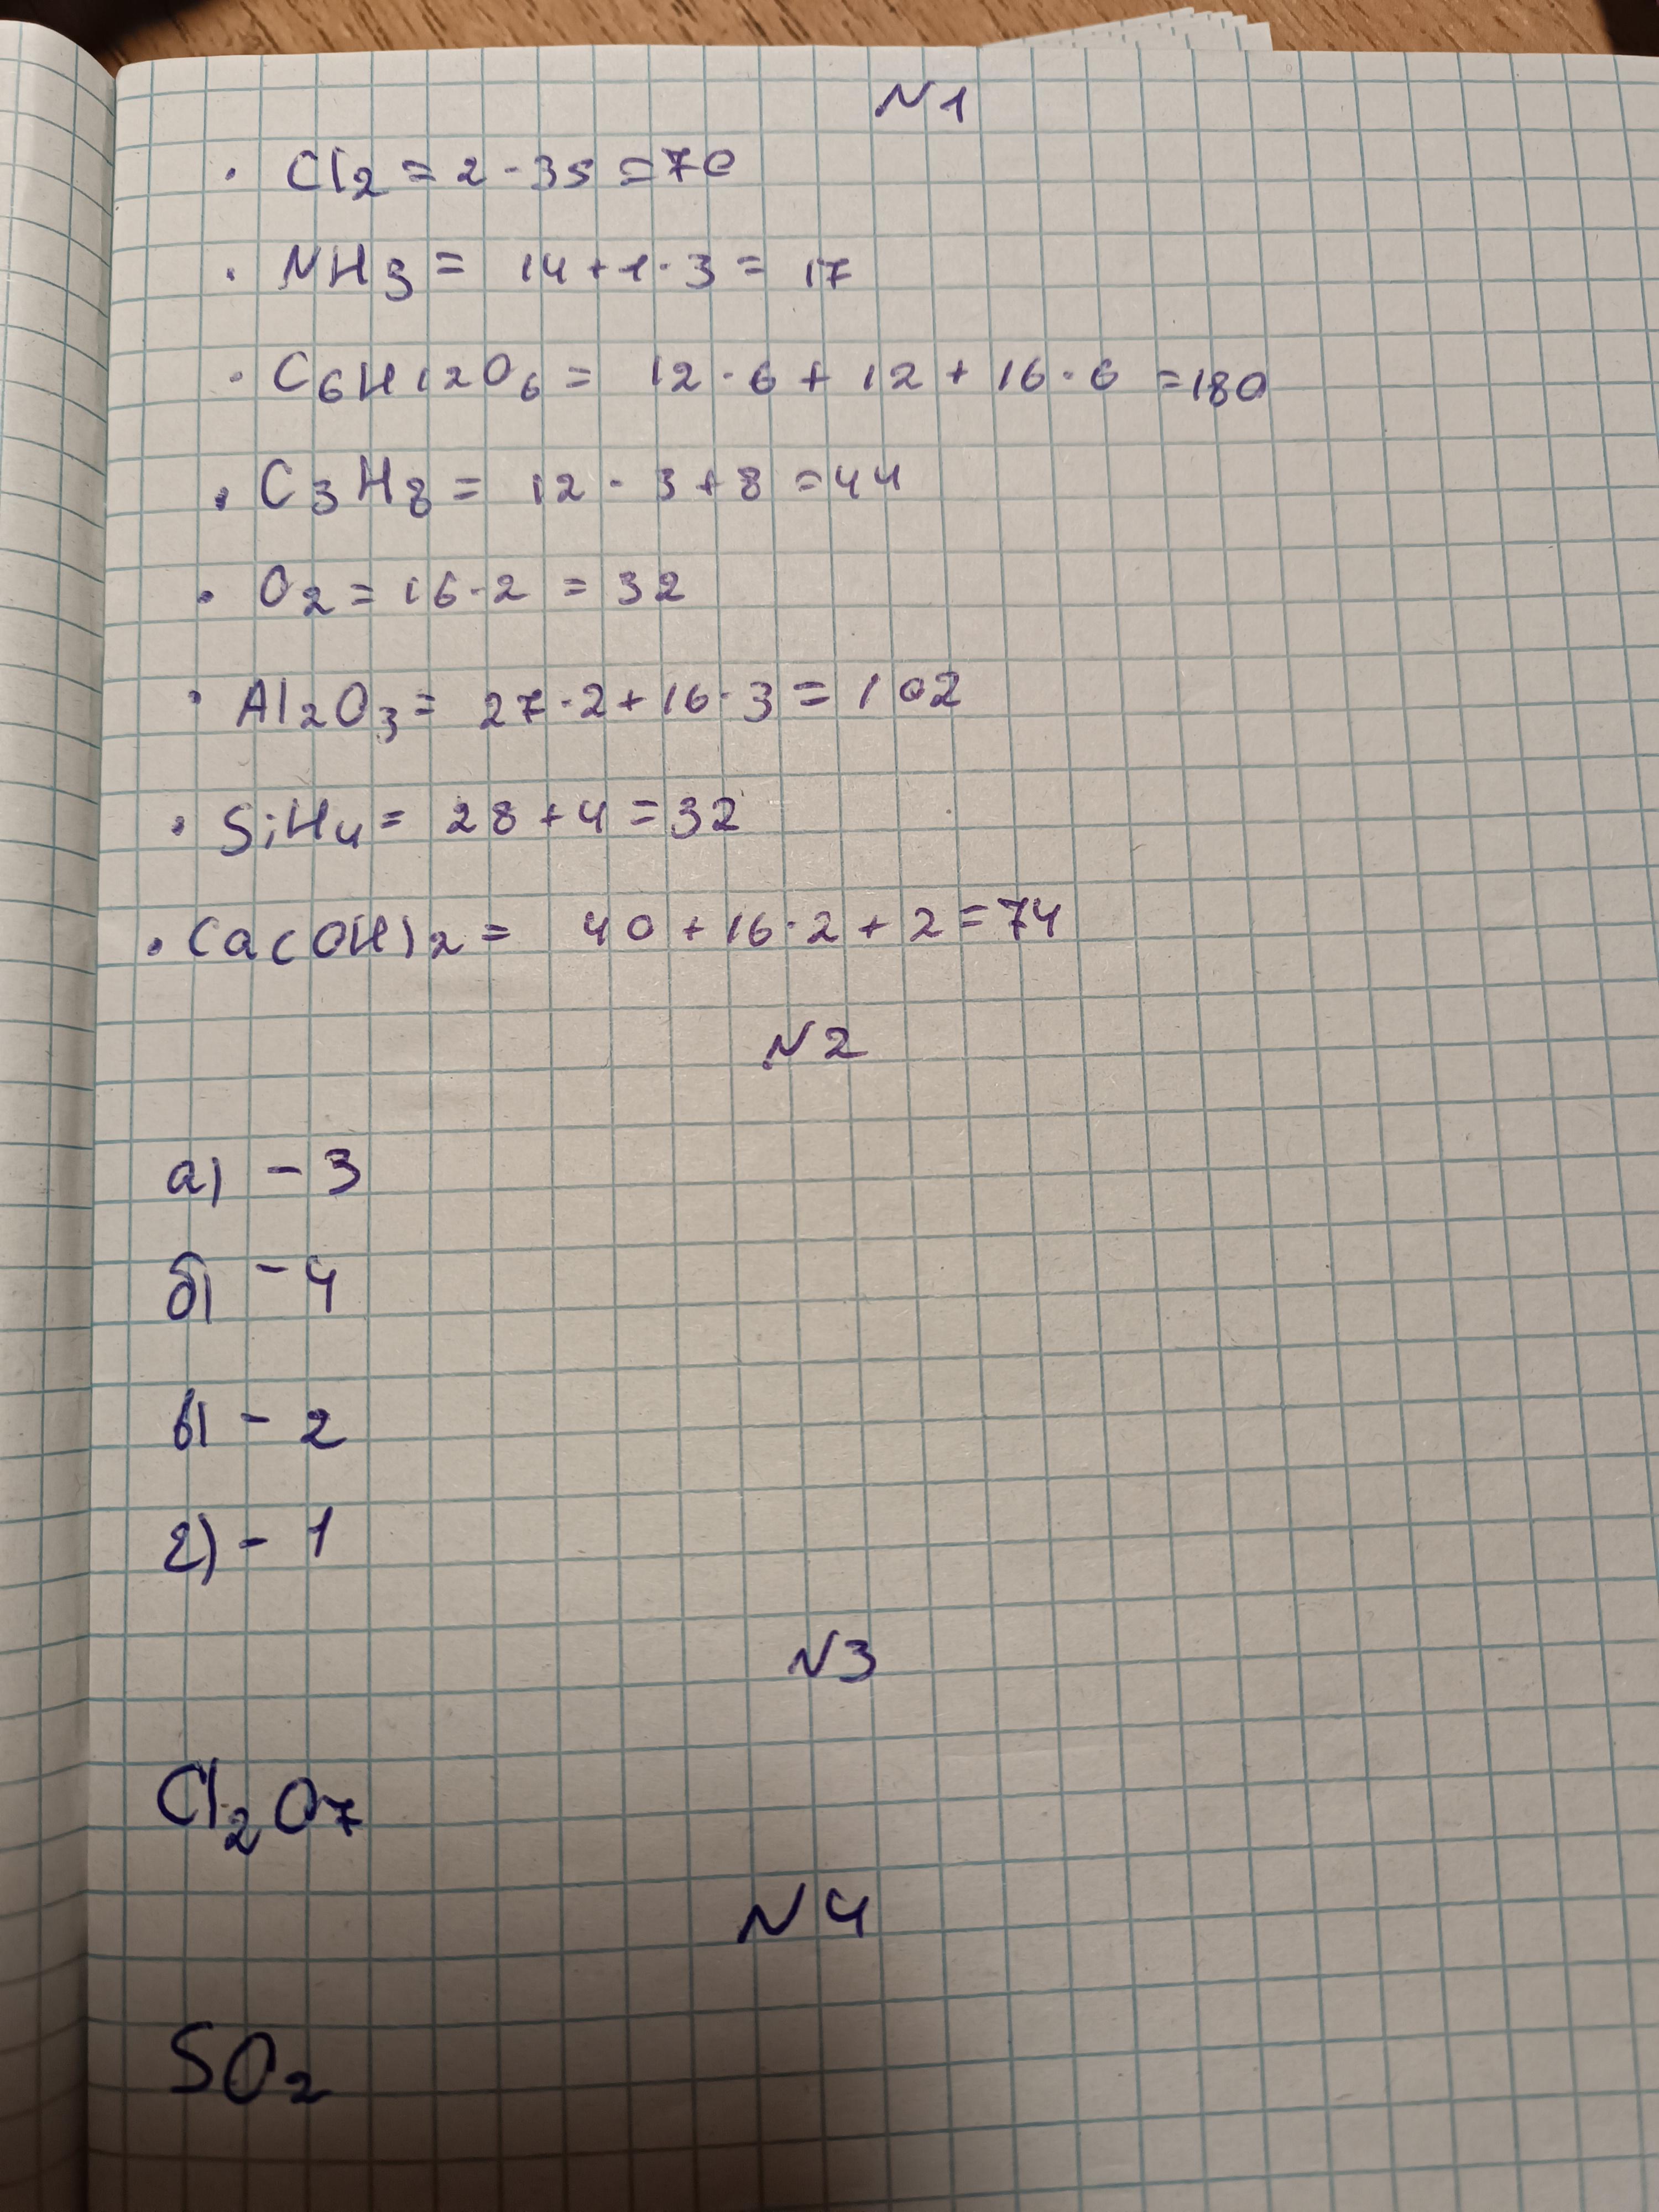 N1
· Cl2 = 2 · 35 = 70
· NH3 = 14 + 1 · 3 = 17
· C6H12O6 = 12 · 6 + 12 + 16 · 6 = 180
· C3H8 = 12 · 3 + 8 = 44
· O2 = 16 · 2 = 32
· Al2O3 = 27 · 2 + 16 · 3 = 102
· SiH4 = 28 + 4 = 32
· Ca(OH)2 = 40 + 16 · 2 + 2 = 74
N2
а) - 3
б) - 4
в) - 2
г) - 1
N3
Cl2O7
N4
SO2